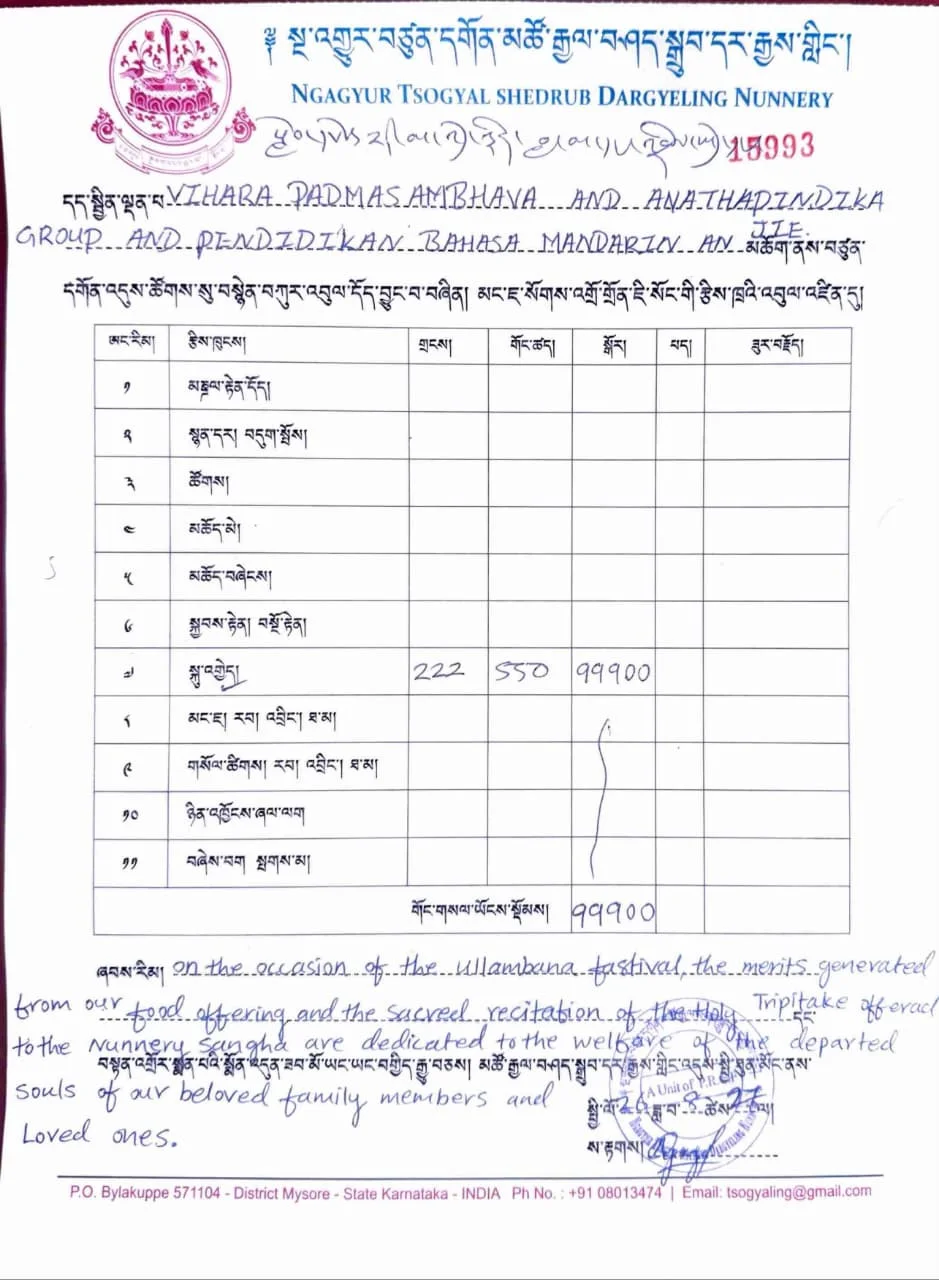 ༄༅། སྔ་འགྱུར་བཙུན་དགོན་མཚོ་རྒྱལ་བཤད་སྒྲུབ་དར་རྒྱས་གླིང་།
NGAGYUR TSOGYAL SHEDRUB DARGYELING NUNNERY
15993
དད་སྦྱིན་ལྡན་པ་ VIHARA PADMASAMBHAVA AND ANATHAPINDIKA
GROUP AND PENDIDIKAN BAHASA MANDARIN AN JIE. མཆོག་ནས་བཙུན་
དགོན་འདུས་ཚོགས་སུ་བསྙེན་བཀུར་འབུལ་དོད་བྱུང་བ་བཞིན། མང་ཇ་སོགས་འགྲོ་གྲོན་ཇི་སོང་གི་རྩིས་ཁྲའི་འབུལ་འཛིན་དུ།
ཨང་རིམ། རྩིས་ཁུངས། གྲངས། གོང་ཚད། སྒོར། པད། ཟུར་བརྗོད།
༡ མཎྜལ་རྟེན་དོད།
༢ སྙན་དར། བདུག་སྤོས།
༣ ཚོགས།
༤ མཆོད་མེ།
༥ མཆོད་བཞེངས།
༦ སྐྱབས་རྟེན། བསྔོ་རྟེན།
༧ སྐུ་འགྱེད། 222 550 99900
༨ མང་ཇ། རབ། འབྲིང་། ཐ་མ།
༩ གསོལ་ཚིགས། རབ། འབྲིང་། ཐ་མ།
༡༠ ཉིན་འཁྱོངས་ཞལ་ལག
༡༡ བཞེས་བག སྤགས་མ།
གོང་གསལ་ཡོངས་སྡོམས། 99900
ཞབས་རིམ། on the occasion of the Ullambana fastival, the merits generated
from our food offering and the sacred recitation of the Holy Tripitake offerad དང་
to the Nunnery Sangha are dedicated to the welfare of the departed
བསྟན་འགྲོར་སྨན་པའི་སྨོན་འདུན་ཟབ་མོ་ཡང་ཡང་བགྱིད་རྒྱུ་བཅས། མཚོ་རྒྱལ་བཤད་སྒྲུབ་དར་རྒྱས་གླིང་འདུས་སྤྱི་ཐུན་མོང་ནས་
souls of our beloved family members and
Loved ones.
སྤྱི་ལོ་ 26 ཟླ་བ་ 8 ཚེས་ 27 ལ།
ས་རྟགས།
A Unit of P.R.
P.O. Bylakuppe 571104 - District Mysore - State Karnataka - INDIA Ph No. : +91 08013474 | Email: tsogyaling@gmail.com